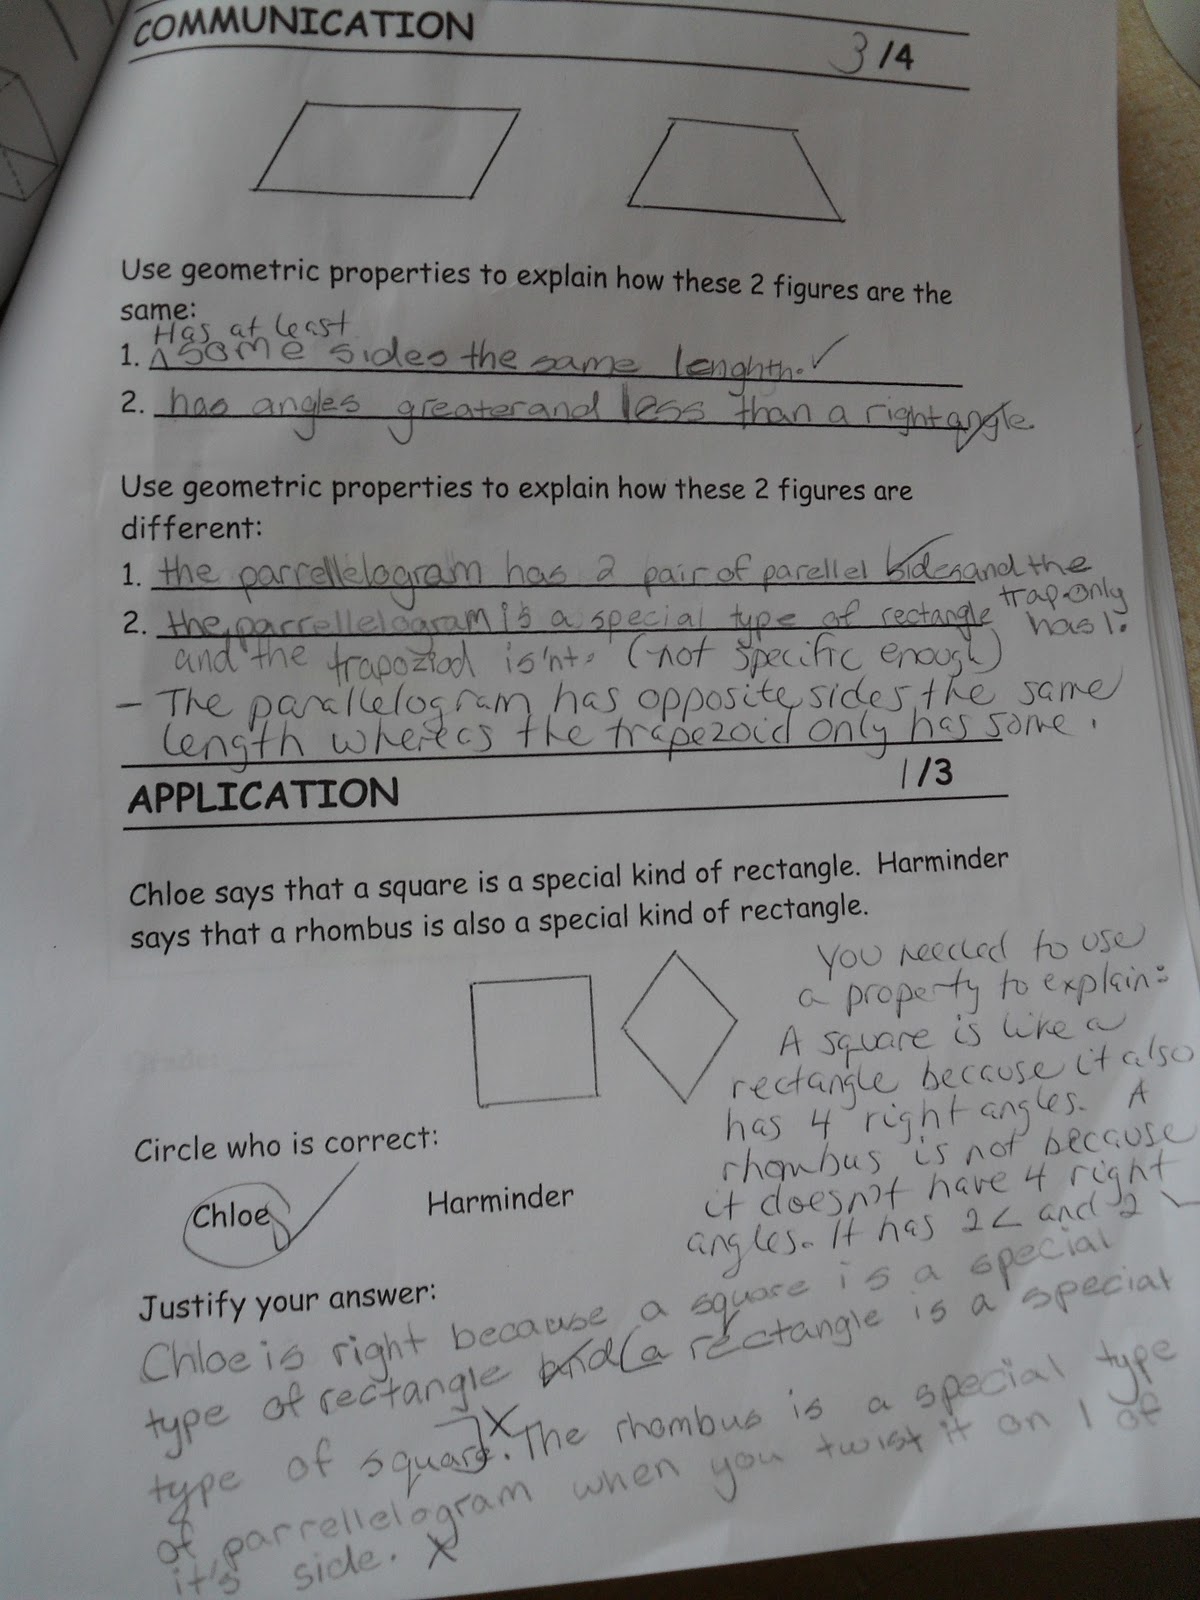 COMMUNICATION
3/4
Use geometric properties to explain how these 2 figures are the
same:
Has at least
1. ^ some sides the same lenghth. ✓
2. has angles greater and less than a right angle.
Use geometric properties to explain how these 2 figures are
different:
1. the parrellelogram has 2 pair of parellel sides and the
trap. only
has 1.
2. the parrellelogram is a special type of rectangle
and the trapoziod is'nt. (not specific enough)
- The parallelogram has opposite sides the same
length whereas the trapezoid only has some.
APPLICATION
1/3
Chloe says that a square is a special kind of rectangle. Harminder
says that a rhombus is also a special kind of rectangle.
You needed to use
a property to explain:
A square is like a
rectangle because it also
has 4 right angles. A
rhombus is not because
it doesn't have 4 right
angles. It has 2 < and 2
Circle who is correct:
Chloe Harminder
Justify your answer:
Chloe is right because a square is a special
type of rectangle and (a rectangle is a special
type of square. X The rhombus is a special type
of parrellelogram when you twist it on 1 of
it's side. X